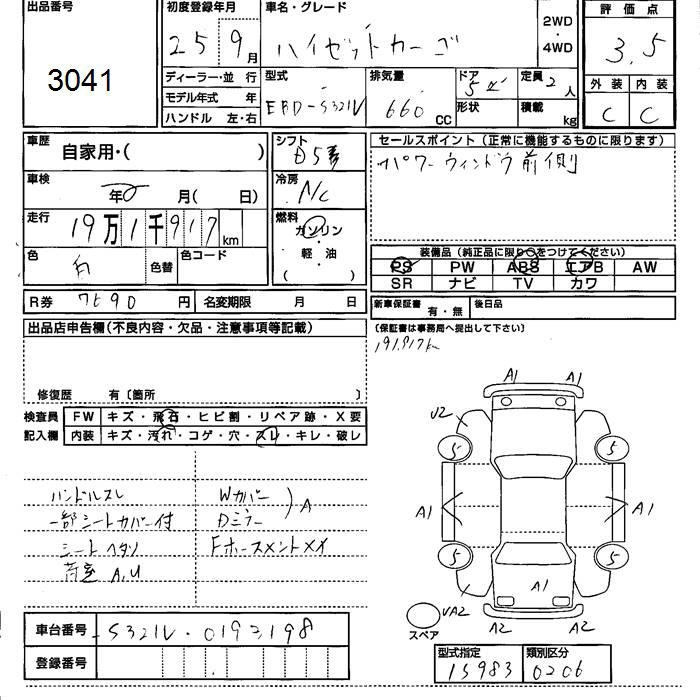 出品番号
3041
初度登録年月
25 9月
車名・グレード
ハイゼットカーゴ
2WD
・
4WD
評価点
3.5
ディーラー・並 行
モデル年式 年
ハンドル 左・右
型式
EBD-S321V
排気量
660 CC
ドア
5
形状
定員
2人
積載
kg
外装 内装
C C
車歴
自家用・( )
シフト
車検
年 月( 日)
冷房
A/C
走行
19万1千917km
燃料
ガソリン
・
軽・油
( )
色
白
色替
色コード
R券
7690円
名変期限 月 日
セールスポイント(正常に機能するものに限ります)
パワーウィンドウ前側
装備品(純正品に限り○をつけてください)
PS PW ABS エアB AW
SR ナビ TV カワ
新車保証書
有・無
後日品
(保証書は事務局へ提出して下さい)
191,917k
出品店申告欄(不良内容・欠品・注意事項等記載)
修復歴 有〔箇所 〕
検査員
記入欄
FW キズ・飛石・ヒビ割・リペア跡・X要
内装 キズ・汚れ・コゲ・穴・スレ・キレ・破レ
ハンドルスレ
一部シートカバー付
シートヘタリ
荷室 A,U
Wカバー
Dミラー
A
A1 A1
U2
5 5
A1 A1
5 5
A1
UA2 A2 A2
スペア
車台番号
S321V-0193198
登録番号
型式指定
15983
類別区分
0206